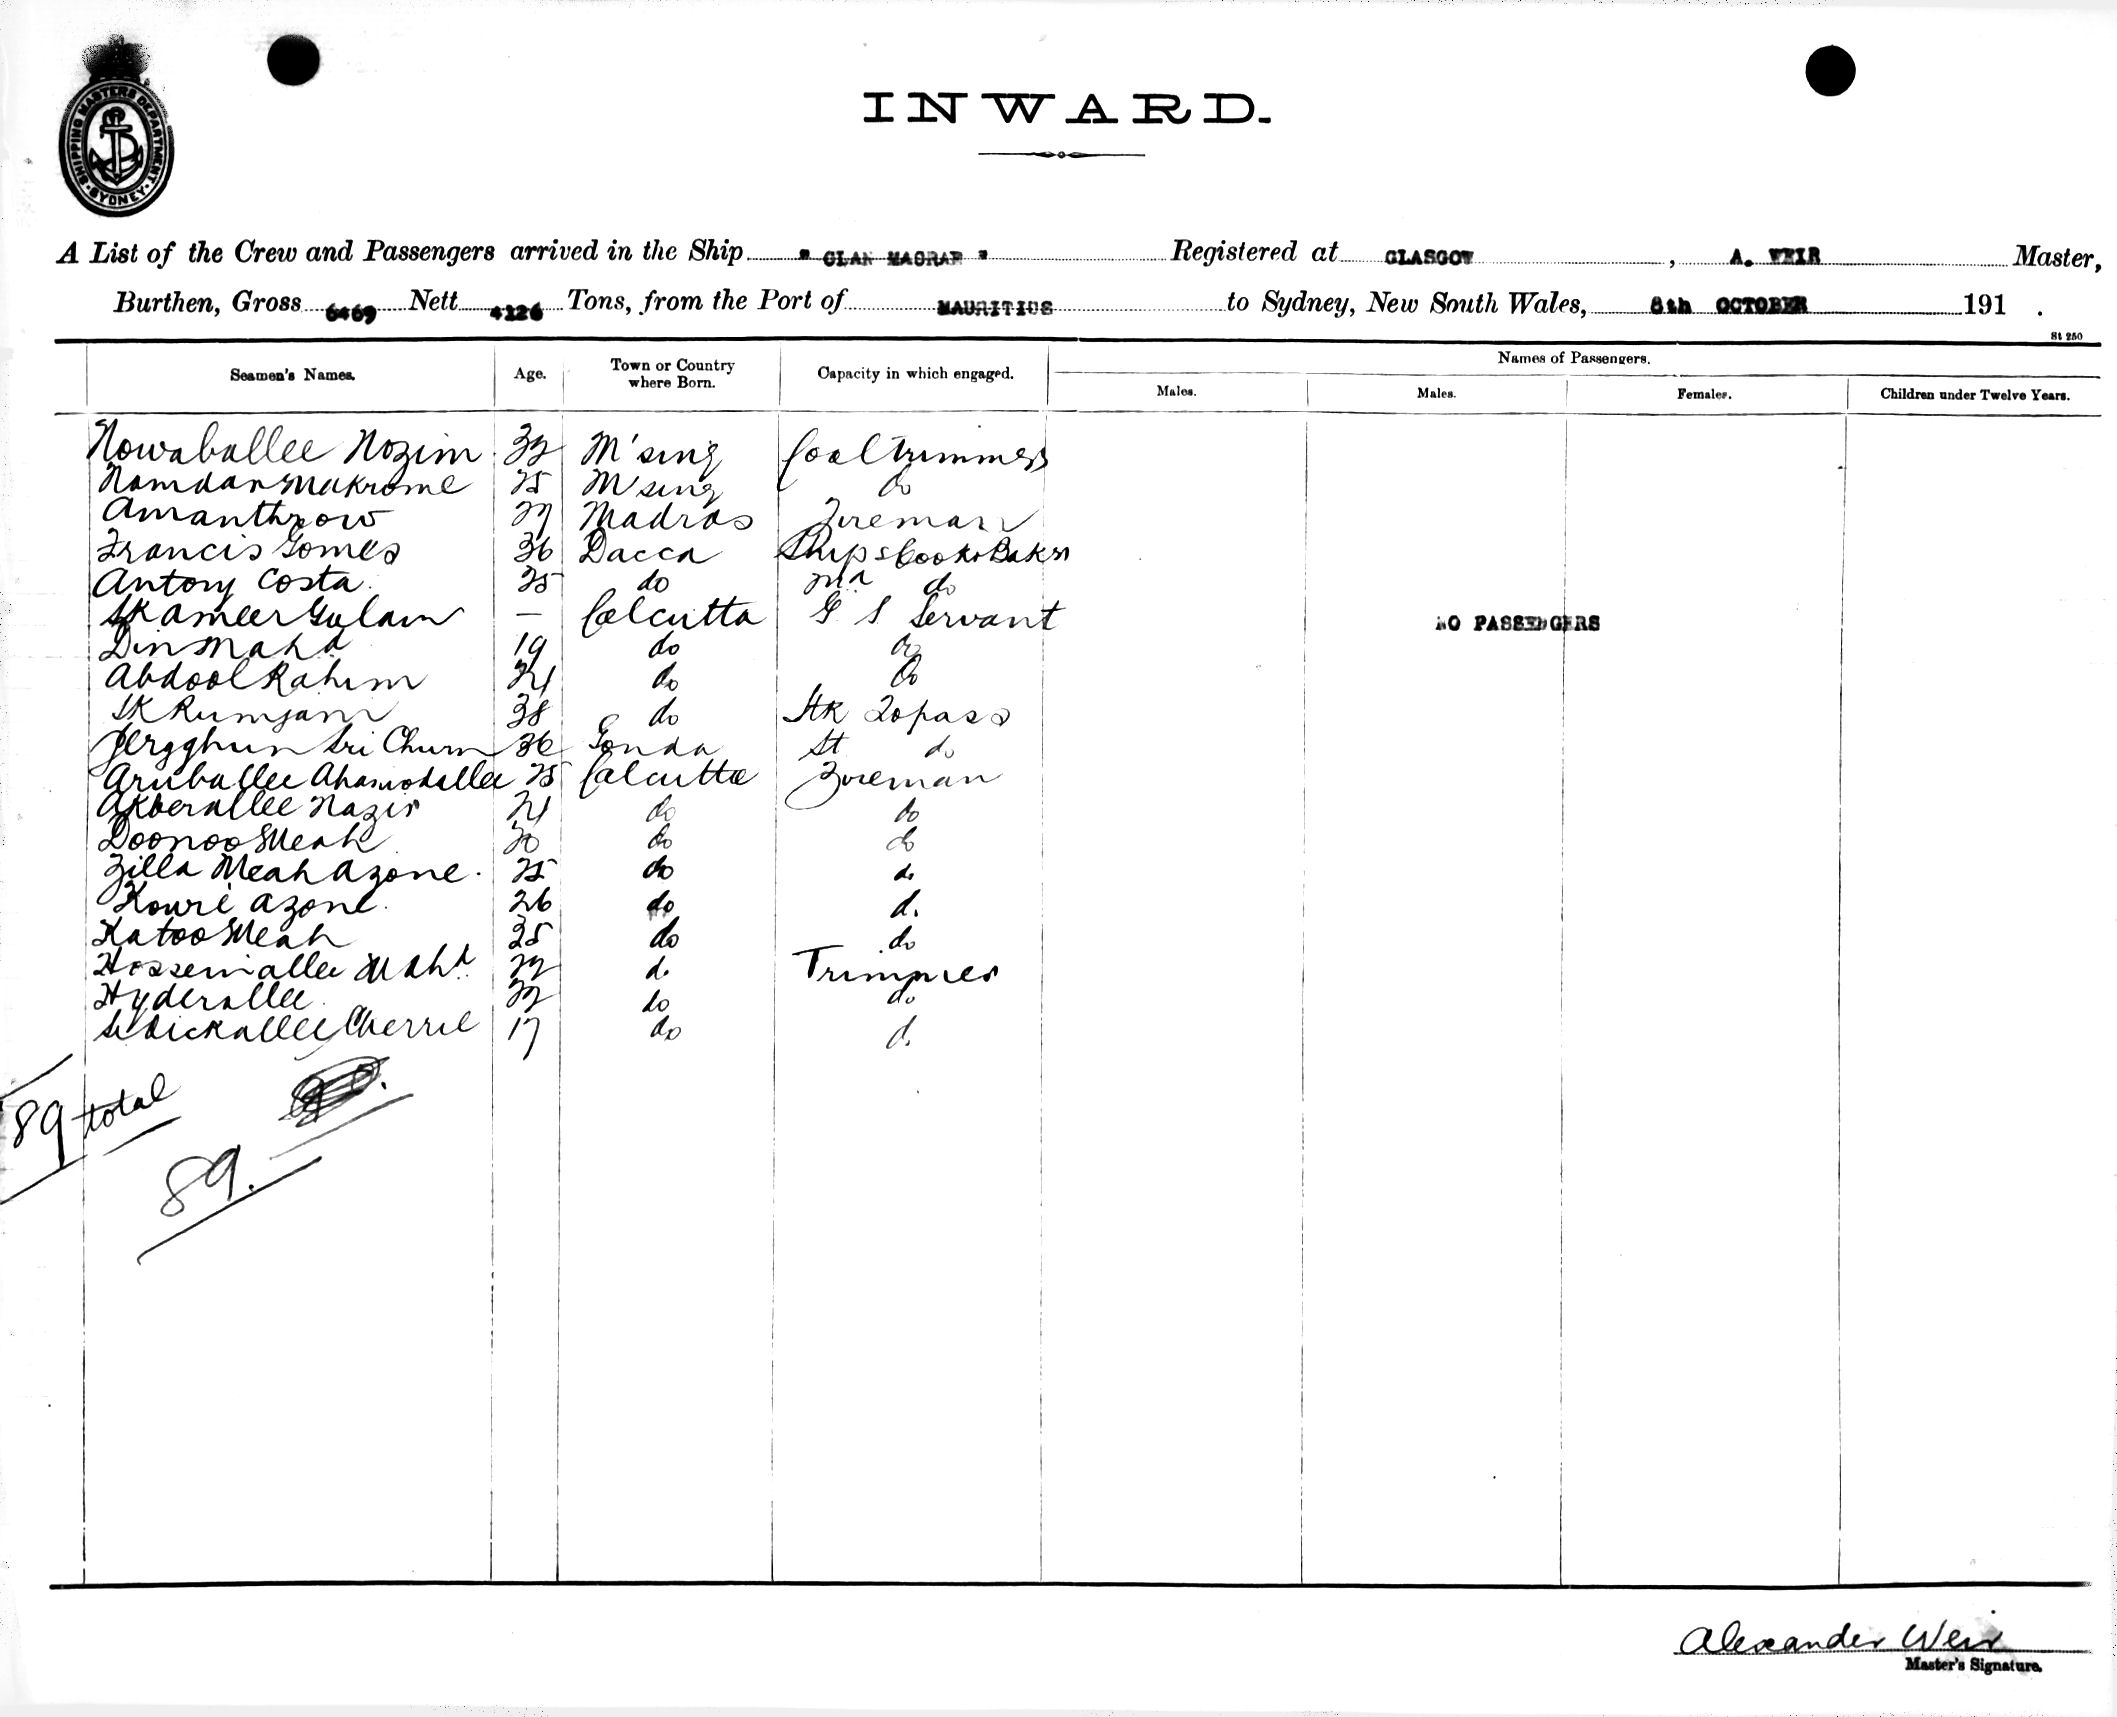 SHIPPING MASTERS DEPARTMENT
SYDNEY
INWARD.
A List of the Crew and Passengers arrived in the Ship " CLAN MACRAE " Registered at GLASGOW , A. WEIR Master,
Burthen, Gross 6469 Nett 4126 Tons, from the Port of MAURITIUS to Sydney, New South Wales, 8th OCTOBER 191 .
St 250
Seamen's Names. Age. Town or Country where Born. Capacity in which engaged. Names of Passengers.
Males. Males. Females. Children under Twelve Years.
Nowaballee Nozim 32 M'sing Coal trimmers
Nomdar Mukrome 25 M'sing do
Amanthrow 27 Madras Fireman
Francis Gomes 36 Dacca Ships Cook & Baker
Antony Costa 25 do 2nd do
SK Ameer Gulam — Calcutta G S Servant
NO PASSENGERS
Din Mahd 19 do do
Abdool Rahim 21 do do
SK Rumjam 38 do Topass
Sri Churn 36 Gonda do
Aruballee Ahamodallee 25 Calcutta Fireman
Akberallee Nazir 21 do do
Doonoo Meah 20 do do
Zilla Meah Azone. 25 do do
Kowri Azone. 26 do do
Katoo Meah 35 do do
Hosseinallee Mahd. 22 do Trimmer
Hyderallee 22 do do
Sedickallee Cherrie 17 do do
89 total
89.
Alexander Weir
Master's Signature.